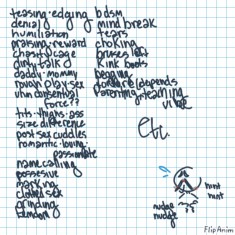 teasing·edging
denial
humiliation
praising·reward
chastity cage
dirty talk
daddy·mommy
rough play·sex
non consensual
force??
tits·thighs·ass
size difference
post sex cuddles
romantic·loving·
passionate
name calling
possesive
marking
clothed sex
grinding
femdom
bdsm
mind break
tears
choking
bruises
kink boots
begging
(depends
etc.
hint
hint
nudge
nudge
FlipAnim